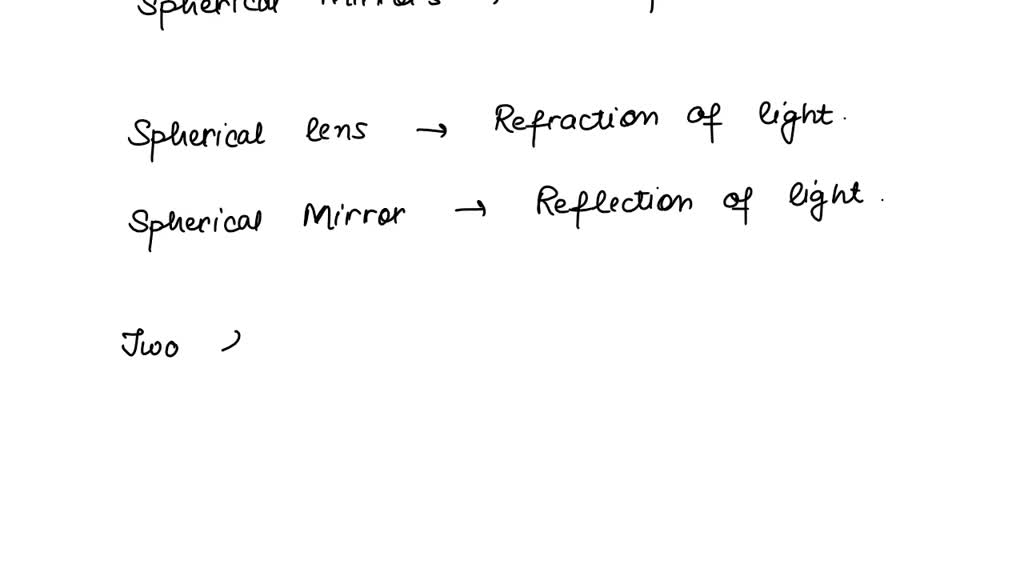 Spherical Mirrors
Spherical lens → Refraction of light.
Spherical Mirror → Reflection of light.
Two